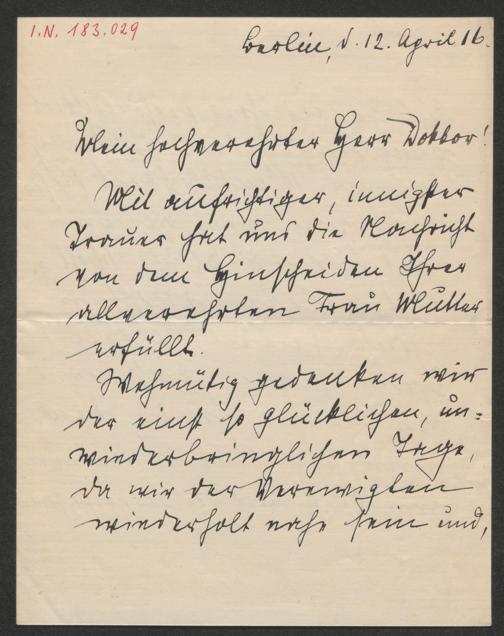 I.N. 183.029
Berlin, d. 12. April 16.
Mein hochverehrter Herr Doktor!
Mit aufrichtiger, innigster
Trauer hat uns die Nachricht
von dem Hinscheiden Ihrer
allverehrten Frau Mutter
erfüllt.
Wehmütig gedenken wir
der einst so glücklichen, un=
wiederbringlichen Tage,
da wir der Verewigten
wiederholt nahe sein und,